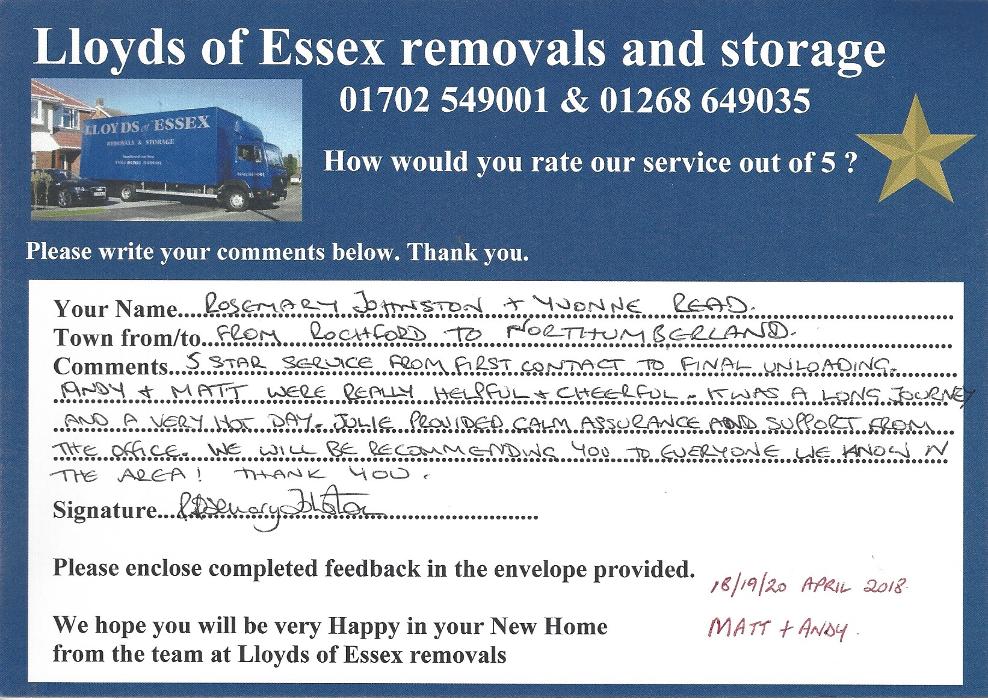 Lloyds of Essex removals and storage
01702 549001 & 01268 649035
LLOYDS of ESSEX
REMOVALS & STORAGE
How would you rate our service out of 5 ?
Please write your comments below. Thank you.
Your Name... ROSEMARY JOHNSTON + YVONNE READ.
Town from/to.. FROM ROCHFORD TO NORTHUMBERLAND.
Comments.. 5 STAR SERVICE FROM FIRST CONTACT TO FINAL UNLOADING.
ANDY + MATT WERE REALLY HELPFUL + CHEERFUL. IT WAS A LONG JOURNEY
AND A VERY HOT DAY. JULIE PROVIDED CALM ASSURANCE AND SUPPORT FROM
THE OFFICE. WE WILL BE RECOMMENDING YOU TO EVERYONE WE KNOW IN
THE AREA! THANK YOU.
Signature... Rosemary Johnston
Please enclose completed feedback in the envelope provided.
18/19/20 APRIL 2018.
We hope you will be very Happy in your New Home
MATT + ANDY.
from the team at Lloyds of Essex removals